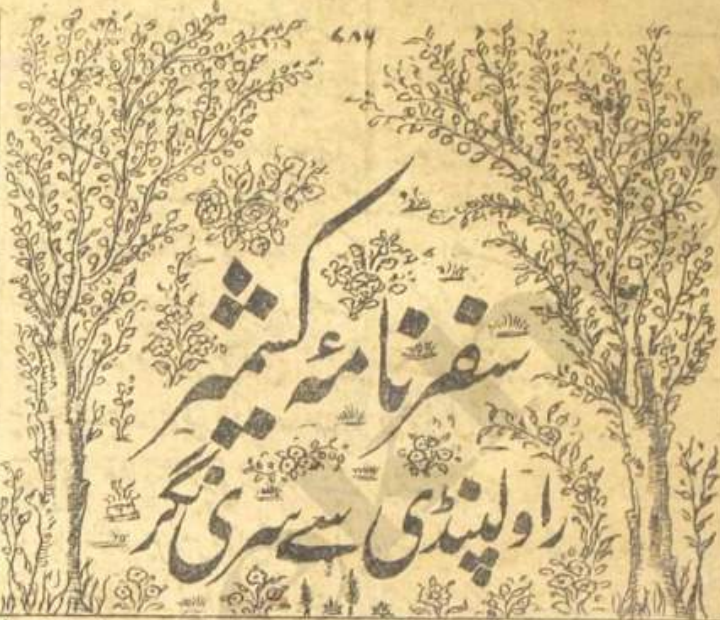 ۷۸۶
سفر نامۂ کشمیر
راولپنڈی سے سری نگر